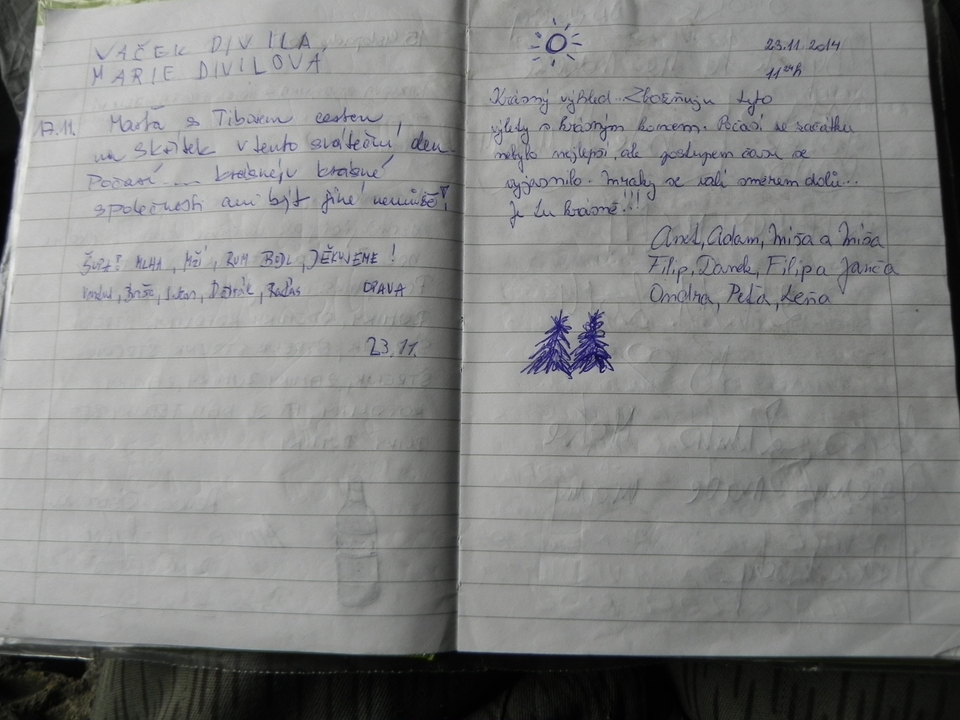 VAČEK DIVILA,
MARIE DIVILOVÁ
17.11. Marťa s Tiborem cestou,
na Skřítek v tento sváteční den.
Počasí ... v krásné
společnosti ani být jiné nemůže!
MLHA, MŽÍ, RUM BODL, DĚKUJEME!
OPAVA
23.11.
23.11.2014
11
Krásný výhled... Zbožňuju tyto
výlety s krásným koncem. Počasí ze začátku
nebylo nejlepší, ale postupem času se
vyjasnilo. Mraky se valí směrem dolů...
Je tu krásně!!!
Anet, Adam, Míša a Míša
Filip, Danek, Filip a Janča
Ondra, Peťa, Leňa